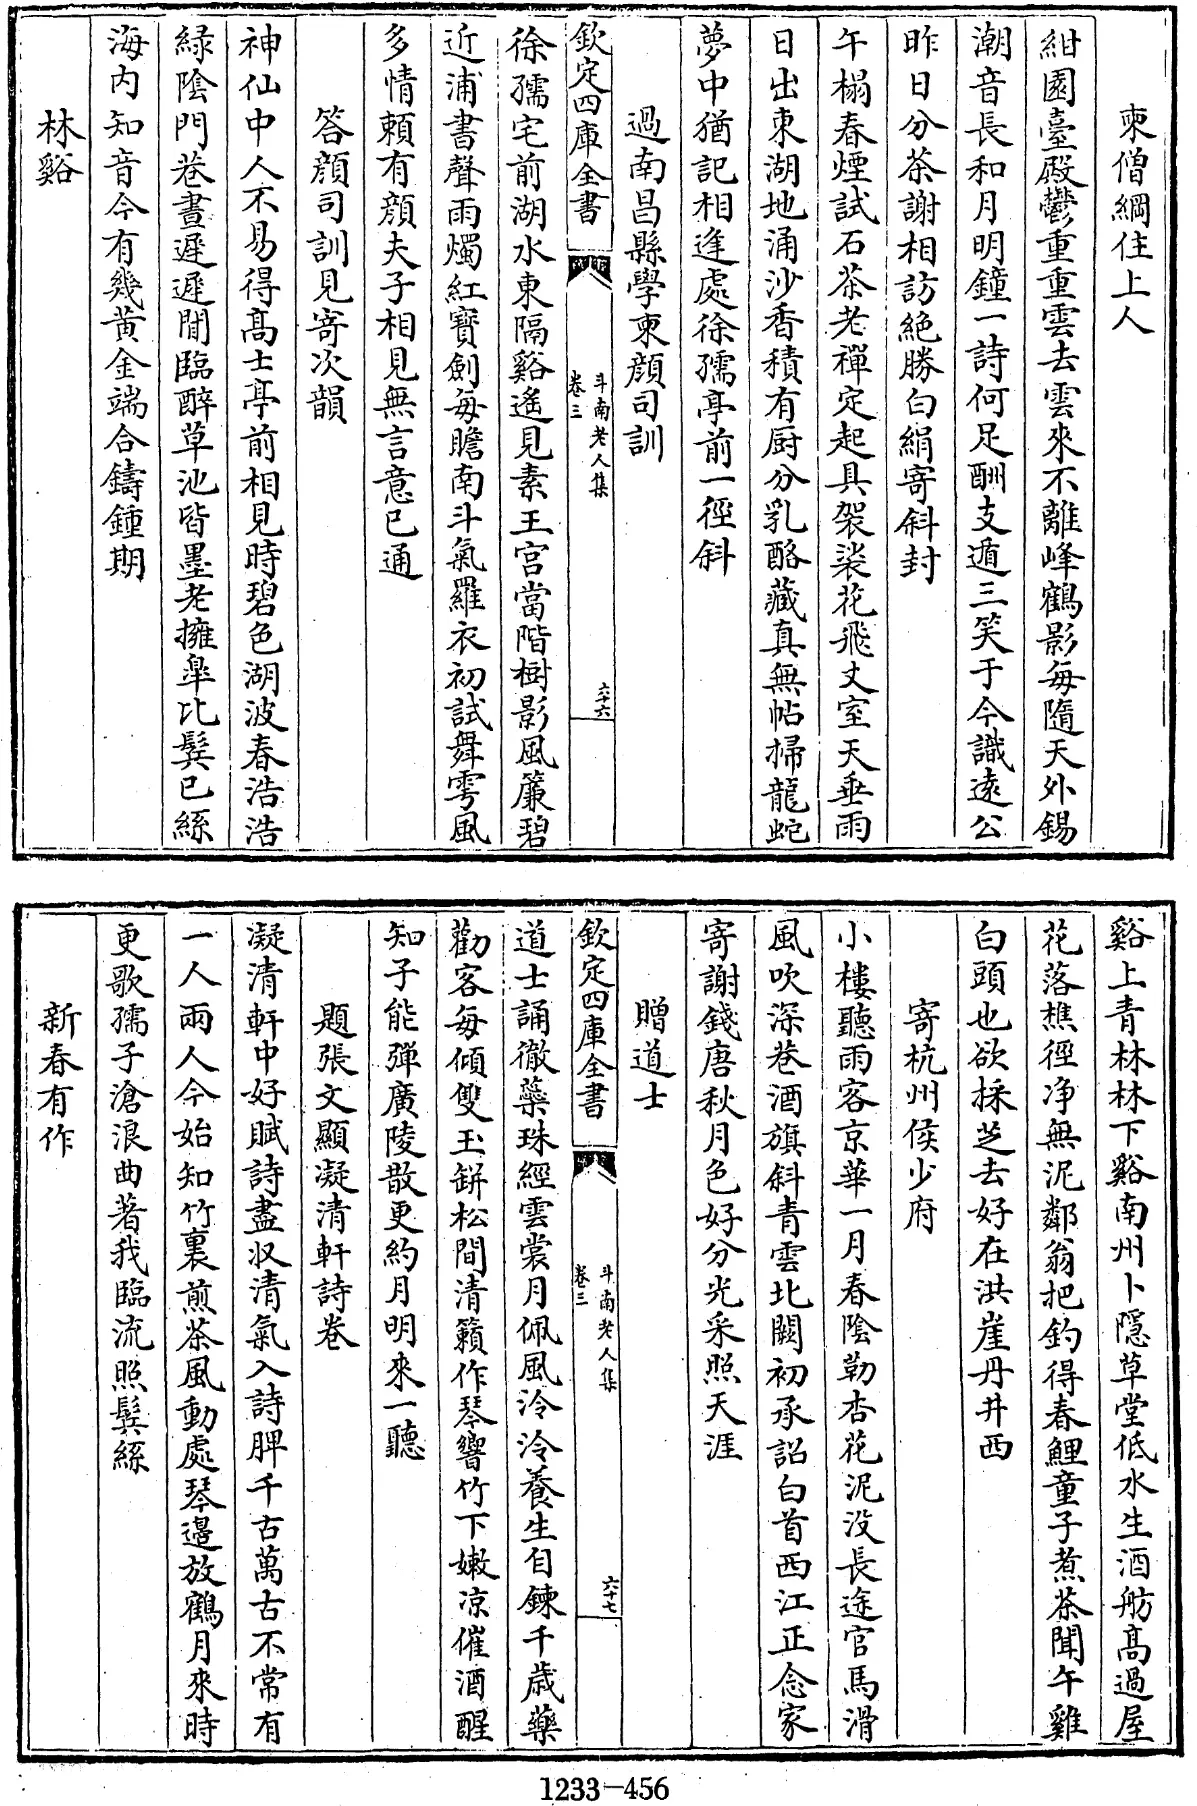 柬僧綱住上人
紺園臺殿鬱重重雲去雲來不離峰鶴影每隨天外錫
潮音長和月明鐘一詩何足酬支遁三笑于今識遠公
昨日分茶謝相訪絕勝白絹寄斜封
午榻春煙試石茶老禪定起具袈裟花飛丈室天垂雨
日出東湖地涌沙香積有厨分乳酪藏真無帖掃龍蛇
夢中猶記相逢處徐孺亭前一徑斜
過南昌縣學柬顔司訓
欽定四庫全書
斗南老人集
卷三
六十六
徐孺宅前湖水東隔谿遙見素王宫當階樹影風簾碧
近浦書聲雨燭紅寶劍每瞻南斗氣羅衣初試舞雩風
多情賴有顔夫子相見無言意已通
答顔司訓見寄次韻
神仙中人不易得髙士亭前相見時碧色湖波春浩浩
緑陰門巷晝遲遲閒臨醉草池皆墨老擁臯比鬂已絲
海内知音今有幾黄金端合鑄鍾期
林谿
谿上青林林下谿南州卜隱草堂低水生酒舫髙過屋
花落樵徑净無泥鄰翁把釣得春鯉童子煮茶聞午雞
白頭也欲採芝去好在洪崖丹井西
寄杭州侯少府
小樓聽雨客京華一月春陰勒杏花泥没長途官馬滑
風吹深巷酒旗斜青雲北闕初承詔白首西江正念家
寄謝錢唐秋月色好分光采照天涯
贈道士
欽定四庫全書
斗南老人集
卷三
六十七
道士誦徹蘂珠經雲裳月佩風泠泠養生自鍊千歳藥
勸客每傾雙玉缾松間清籟作琴響竹下嫩凉催酒醒
知子能彈廣陵散更約月明來一聽
題張文顯凝清軒詩卷
凝清軒中好賦詩盡收清氣入詩脾千古萬古不常有
一人兩人今始知竹裏煎茶風動處琴邉放鶴月來時
更歌孺子滄浪曲著我臨流照鬂絲
新春有作
1233-456